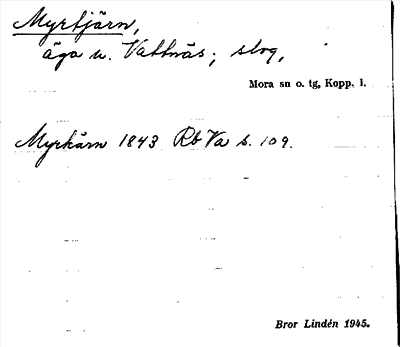 Myrtjärn,
äga u. Vattnäs; skog,
Mora sn o. tg, Kopp. l.
Myrkärn 1843 Rb Va s. 109.
Bror Lindén 1945.